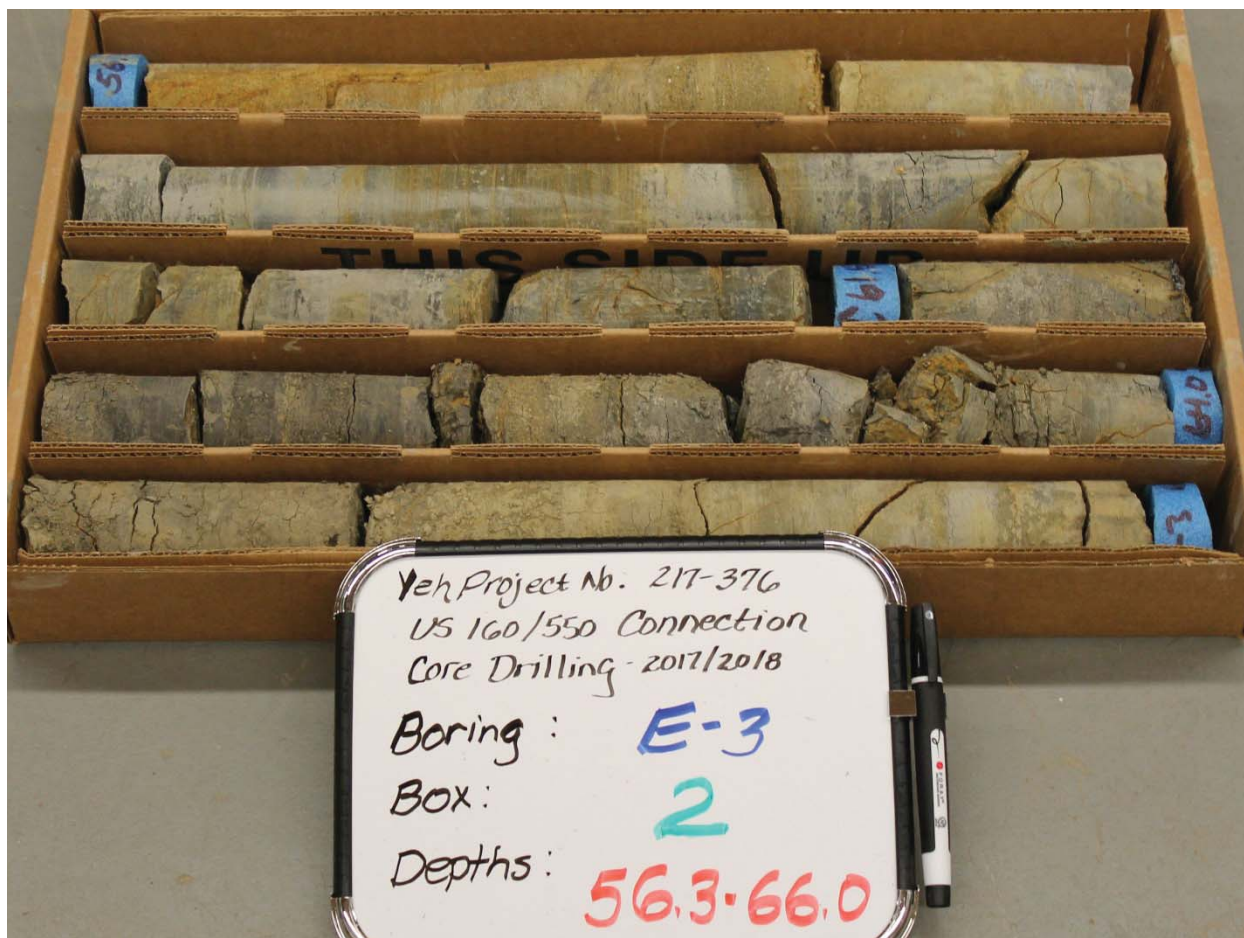 56
THIS SIDE UP
61.9
64.0
Yeh Project No: 217-376
US 160/550 Connection
Core Drilling - 2017/2018
Boring: E-3
Box: 2
Depths: 56.3-66.0